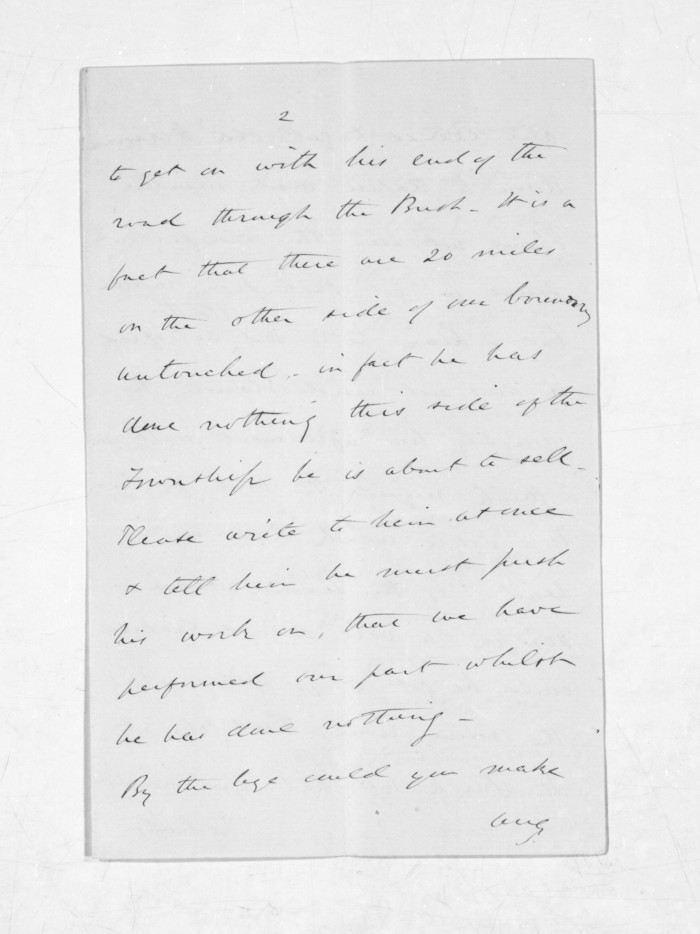 2
to get on with his end of the
road through the Bush - It is a
fact that there are 20 miles
on the other side of our boundary
untouched - in fact he has
done nothing this side of the
Township he is about to sell -
Please write to him at once
& tell him he must push
his work on, that we have
performed our part whilst
he has done nothing -
By the bye could you make
any